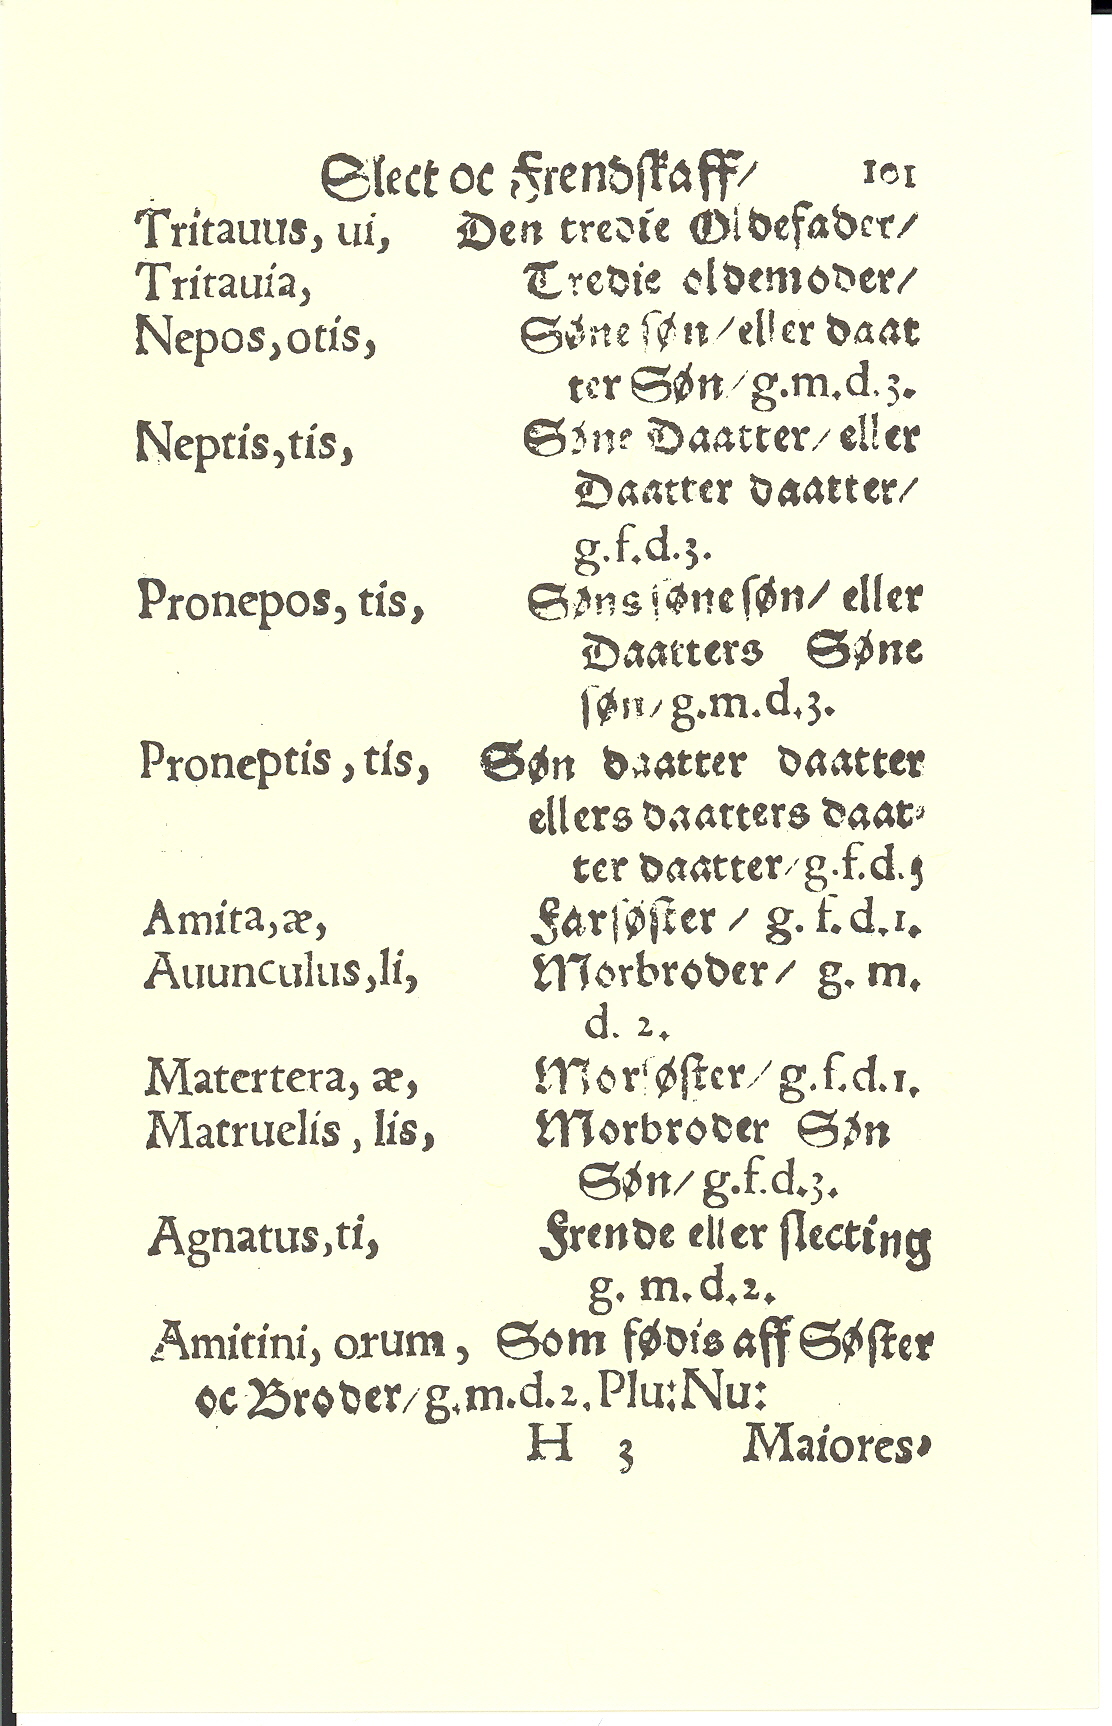 Slect oc Frendskaff/ 101
Tritauus, ui, Den tredie Oldefader/
Tritauia, Tredie oldemoder/
Nepos, otis, Søne søn/eller daat
ter Søn/g.m.d.3.
Neptis, tis, Søne Daatter/eller
Daatter daatter/
g.f.d.3.
Pronepos, tis, Søns søne søn/ eller
Daatters Søne
søn/g.m.d.3.
Proneptis, tis, Søn daatter daatter
ellers daatters daat-
ter daatter/g.f.d.3
Amita, æ, Farsøster / g. f. d.1.
Auunculus, li, Morbroder/ g. m.
d. 2.
Matertera, æ, Morsøster/g.f.d.1.
Matruelis, lis, Morbroder Søn
Søn/g.f.d.3.
Agnatus, ti, Frende eller slecting
g. m.d.2.
Amitini, orum, Som fødis aff Søster
oc Broder/g.m.d.2.Plu:Nu:
H 3 Maiores,